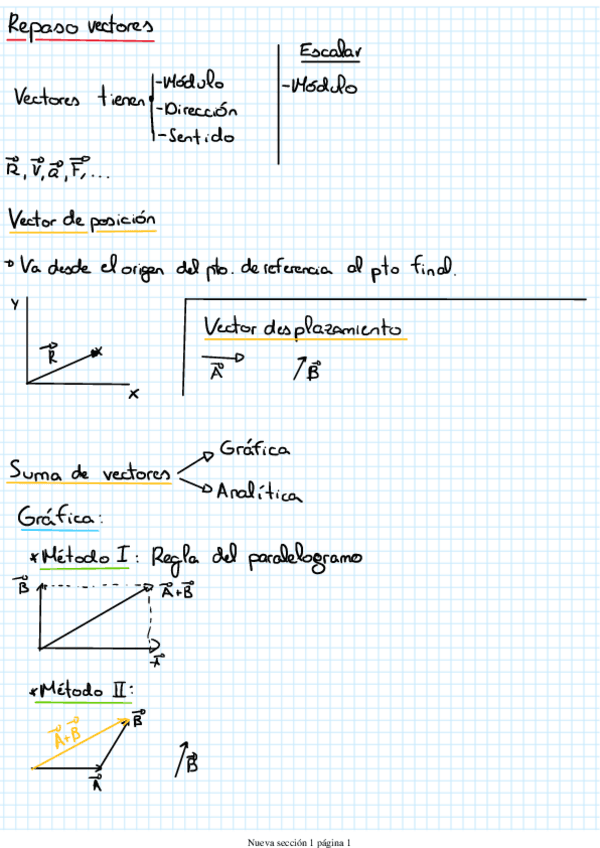 Repaso vectores
Escalar
Vectores tienen
-Módulo
-Dirección
-Sentido
-Módulo
R⃗, V⃗, a⃗, F⃗, ...
Vector de posición
→ Va desde el origen del pto. de referencia al pto final.
Y
R⃗
X
Vector desplazamiento
A⃗
B⃗
Suma de vectores
Gráfica
Analítica
Gráfica:
*Método I: Regla del paralelogramo
B⃗
A⃗+B⃗
A⃗
*Método II:
A⃗+B⃗
B⃗
A⃗
B⃗
Nueva sección 1 página 1